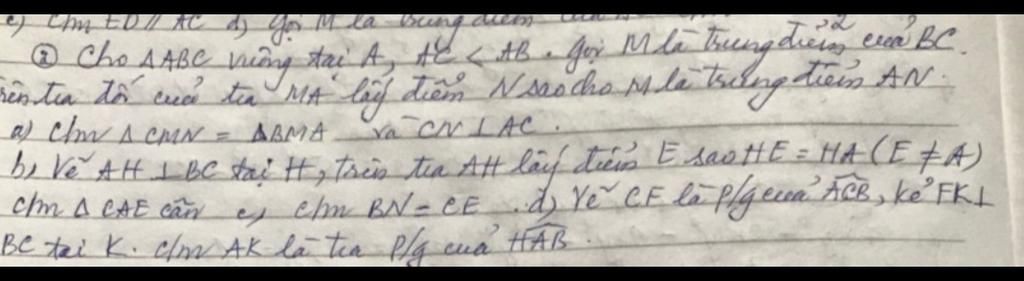 c) Chm ED // AC d) Gọi M là trung điểm của
② Cho △ABC vuông tại A, AC < AB. Gọi M là trung điểm của BC.
trên tia đối của tia MA lấy điểm N sao cho M là trung điểm AN.
a) Chm △CMN = △BMA và CN ⊥ AC.
b, Vẽ AH ⊥ BC tại H, trên tia AH lấy điểm E sao HE = HA (E ≠ A)
c/m △CAE cân c, c/m BN = CE . d, Vẽ CF là p/g của ACB, kẻ FK ⊥
BC tại K. c/m AK là tia p/g của HAB.